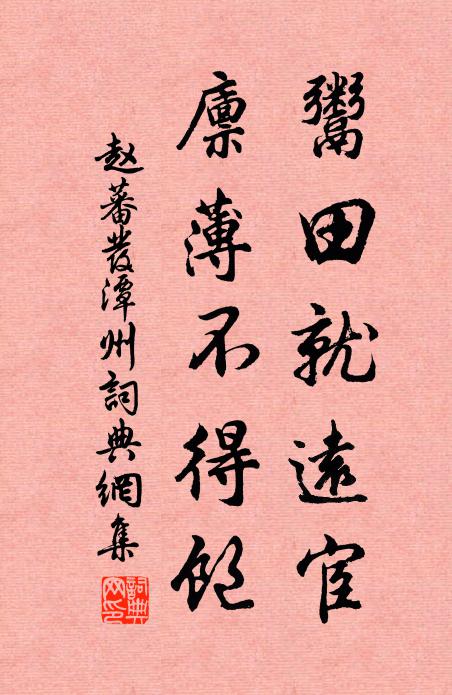 鬻田就遠宦
廩薄不得飽
赵蕃發潭州詞典網集
詞典
网印